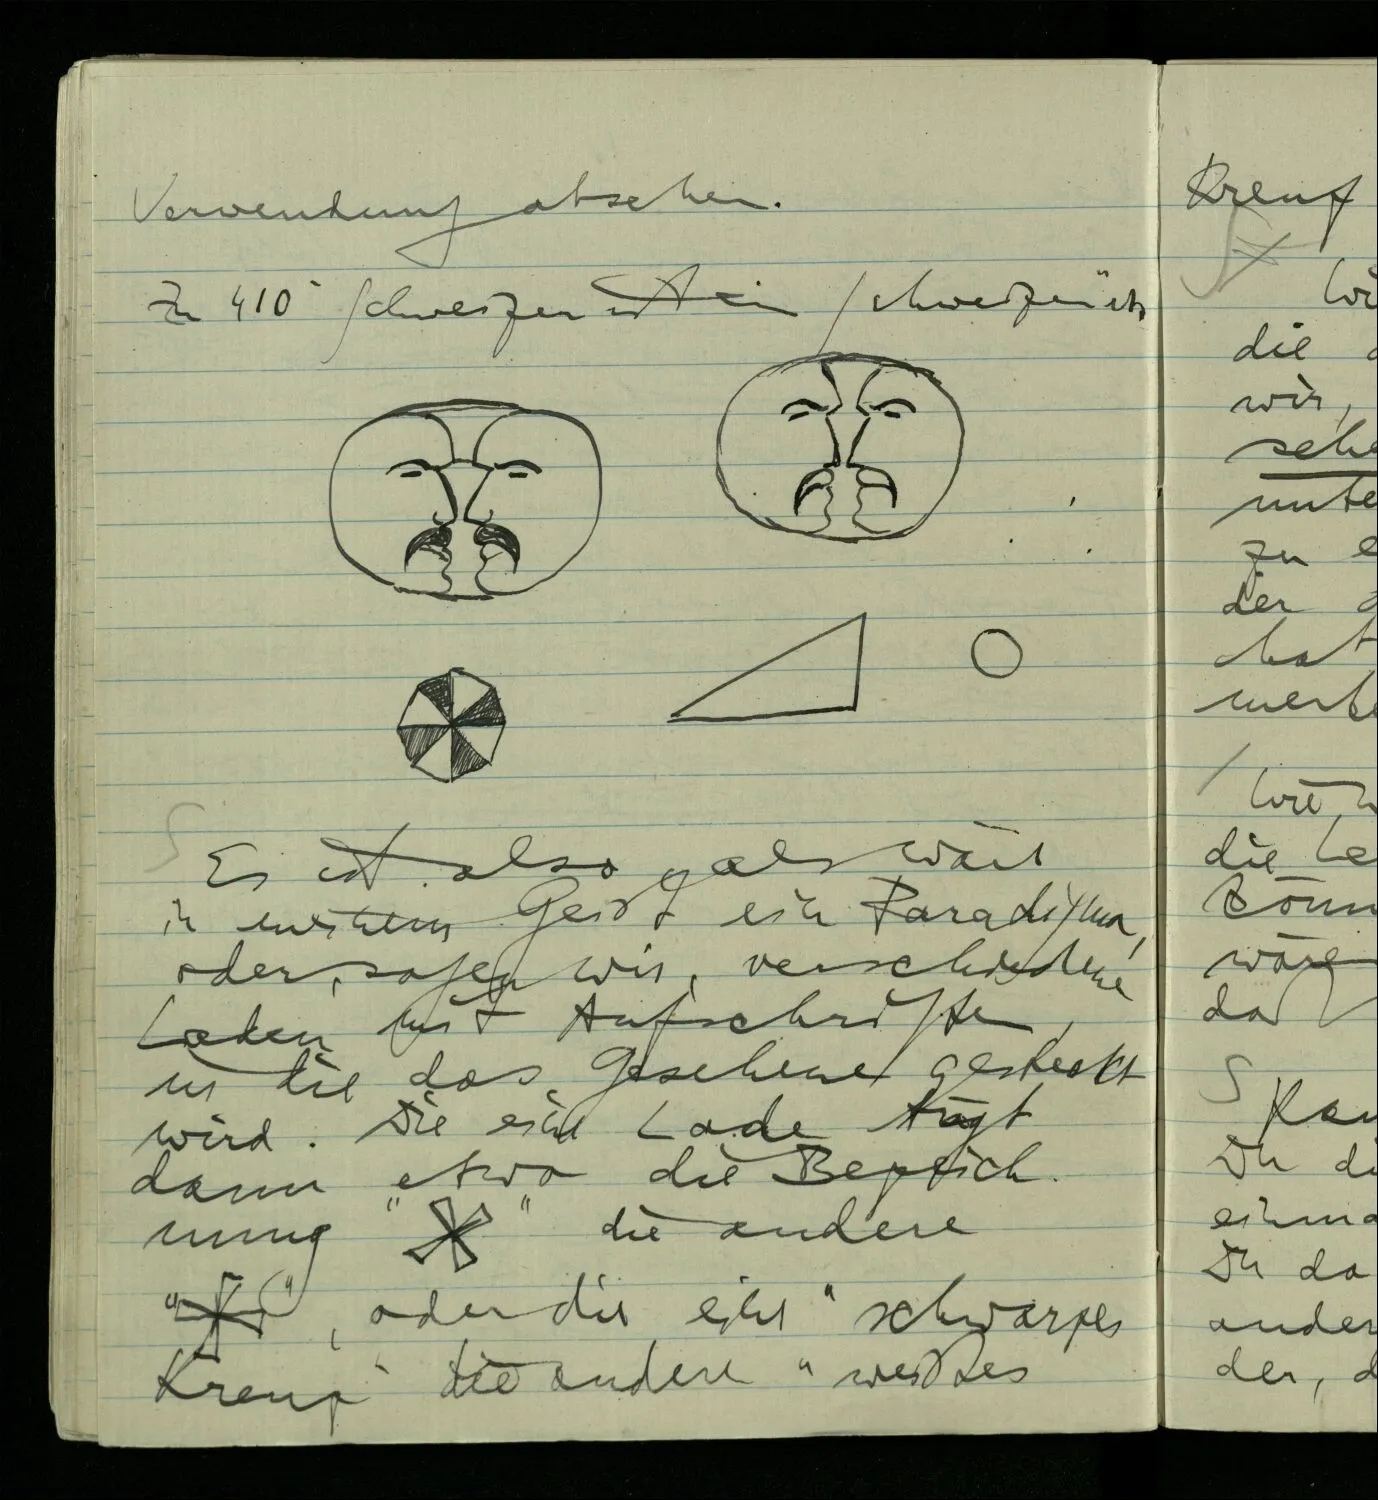 Verwendung absehen.
Zu 410 Schweizer ist ein
Es ist also als wär
in meinem Geist ein Paradigma,
oder, sagen wir, verschiedene
Laden mit Aufschriften,
in die das Gesehene gesteckt
wird. Die eine Lade trägt
dann etwa die Bezeich-
nung " " die andere
" ", oder die eine "schwarzes
Kreuz" die andere "weißes
Kreuz
die
wir,
sehe
unte
zu e
der
hat
werde
die
könn
wäre
da
Kan
Du di
einma
Du da
ander
der, d